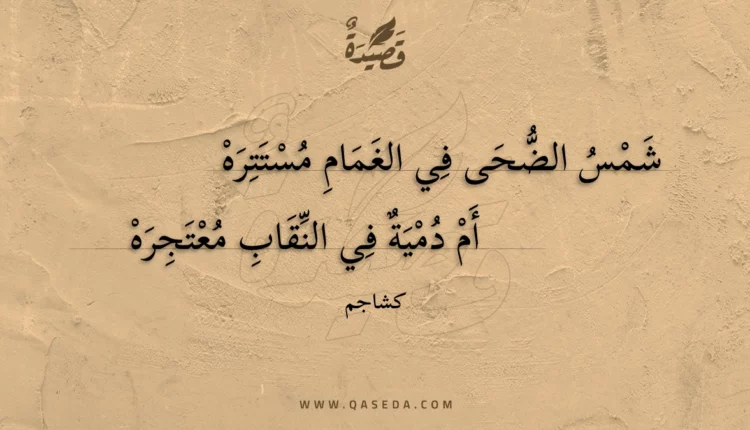 قَصِيدَةٌ
شَمْسُ الضُّحَى فِي الغَمَامِ مُسْتَتِرَهْ
أَمْ دُمْيَةٌ فِي النِّقَابِ مُعْتَجِرَهْ
كشاجم
WWW.QASEDA.COM